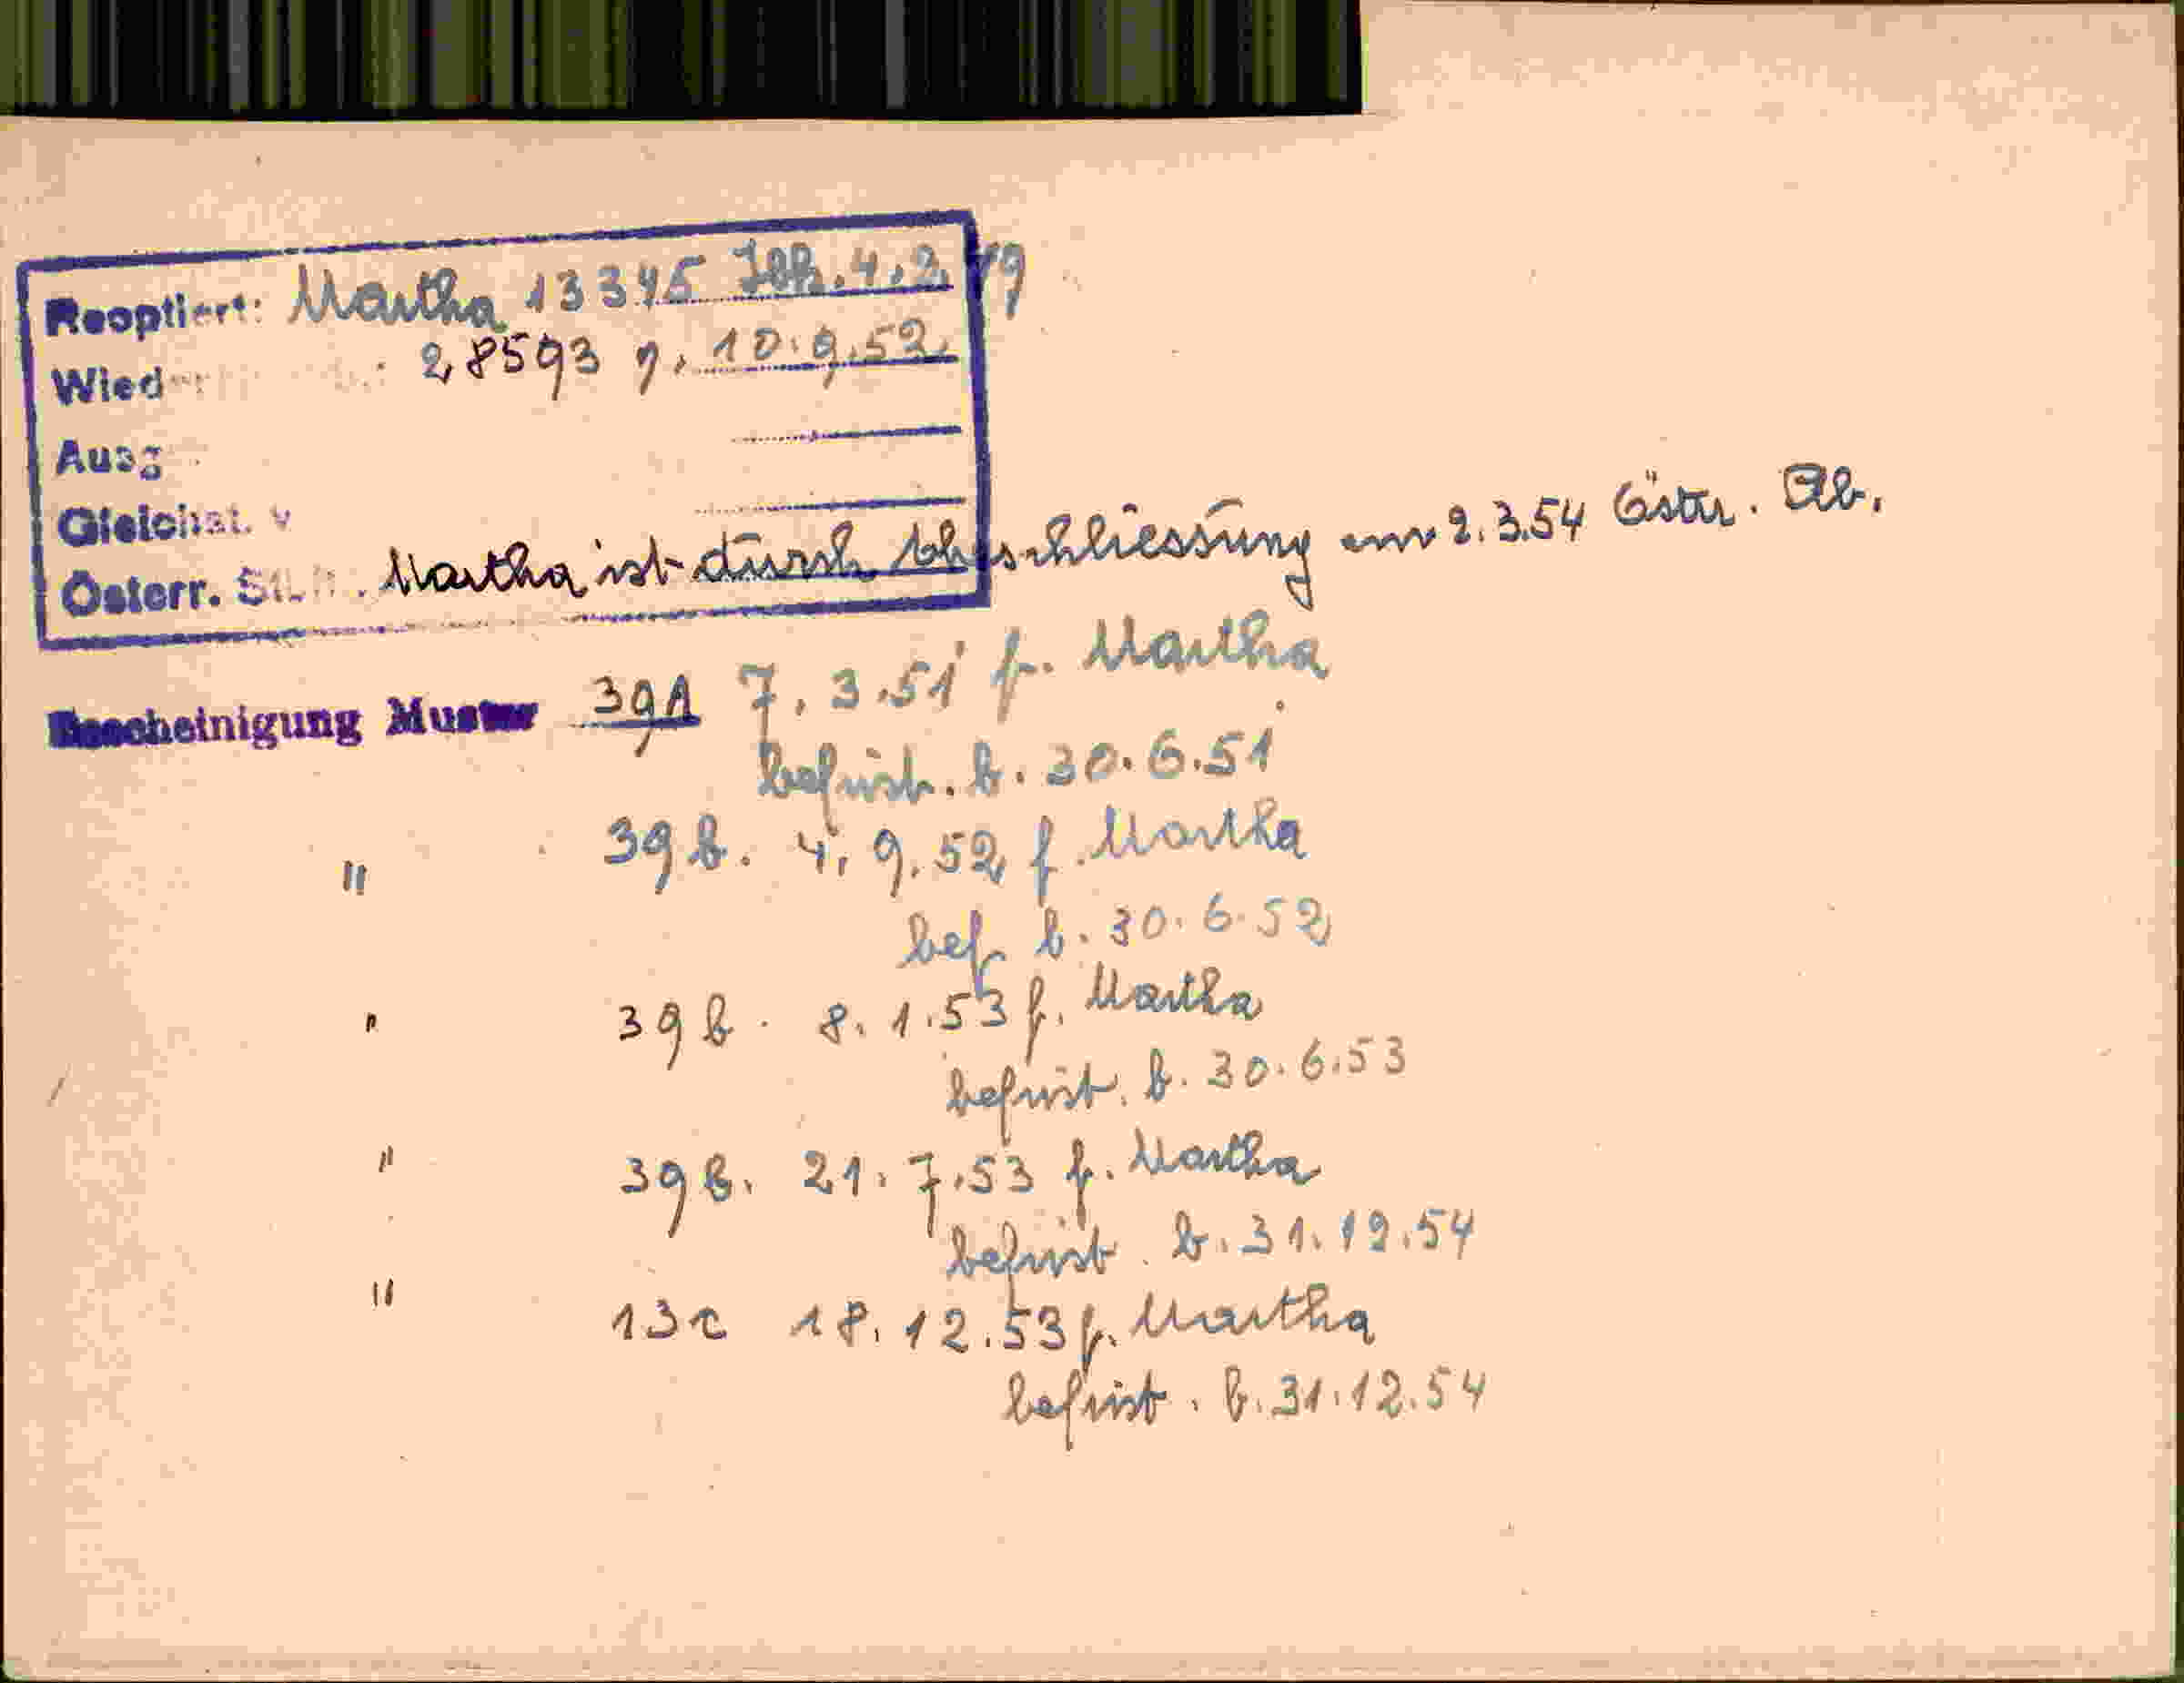 Reoptiert: Martha 13345 Ibk. 4.2.49
Wied 28593 v. 10.9.52
Ausg
Gleichst. v
Österr. St. Martha ist durch Eheschliessung am 2.3.54 Östr. Stb.
Bescheinigung Muster 39A 7.3.51 f. Martha
befrist. b. 30.6.51
" 39b. 4.9.52 f. Martha
bef. b. 30.6.52
" 39b. 8.1.53 f. Martha
befrist. b. 30.6.53
" 39b. 21.7.53 f. Martha
befrist. b. 31.12.54
" 13c 18.12.53 f. Martha
befrist. b. 31.12.54